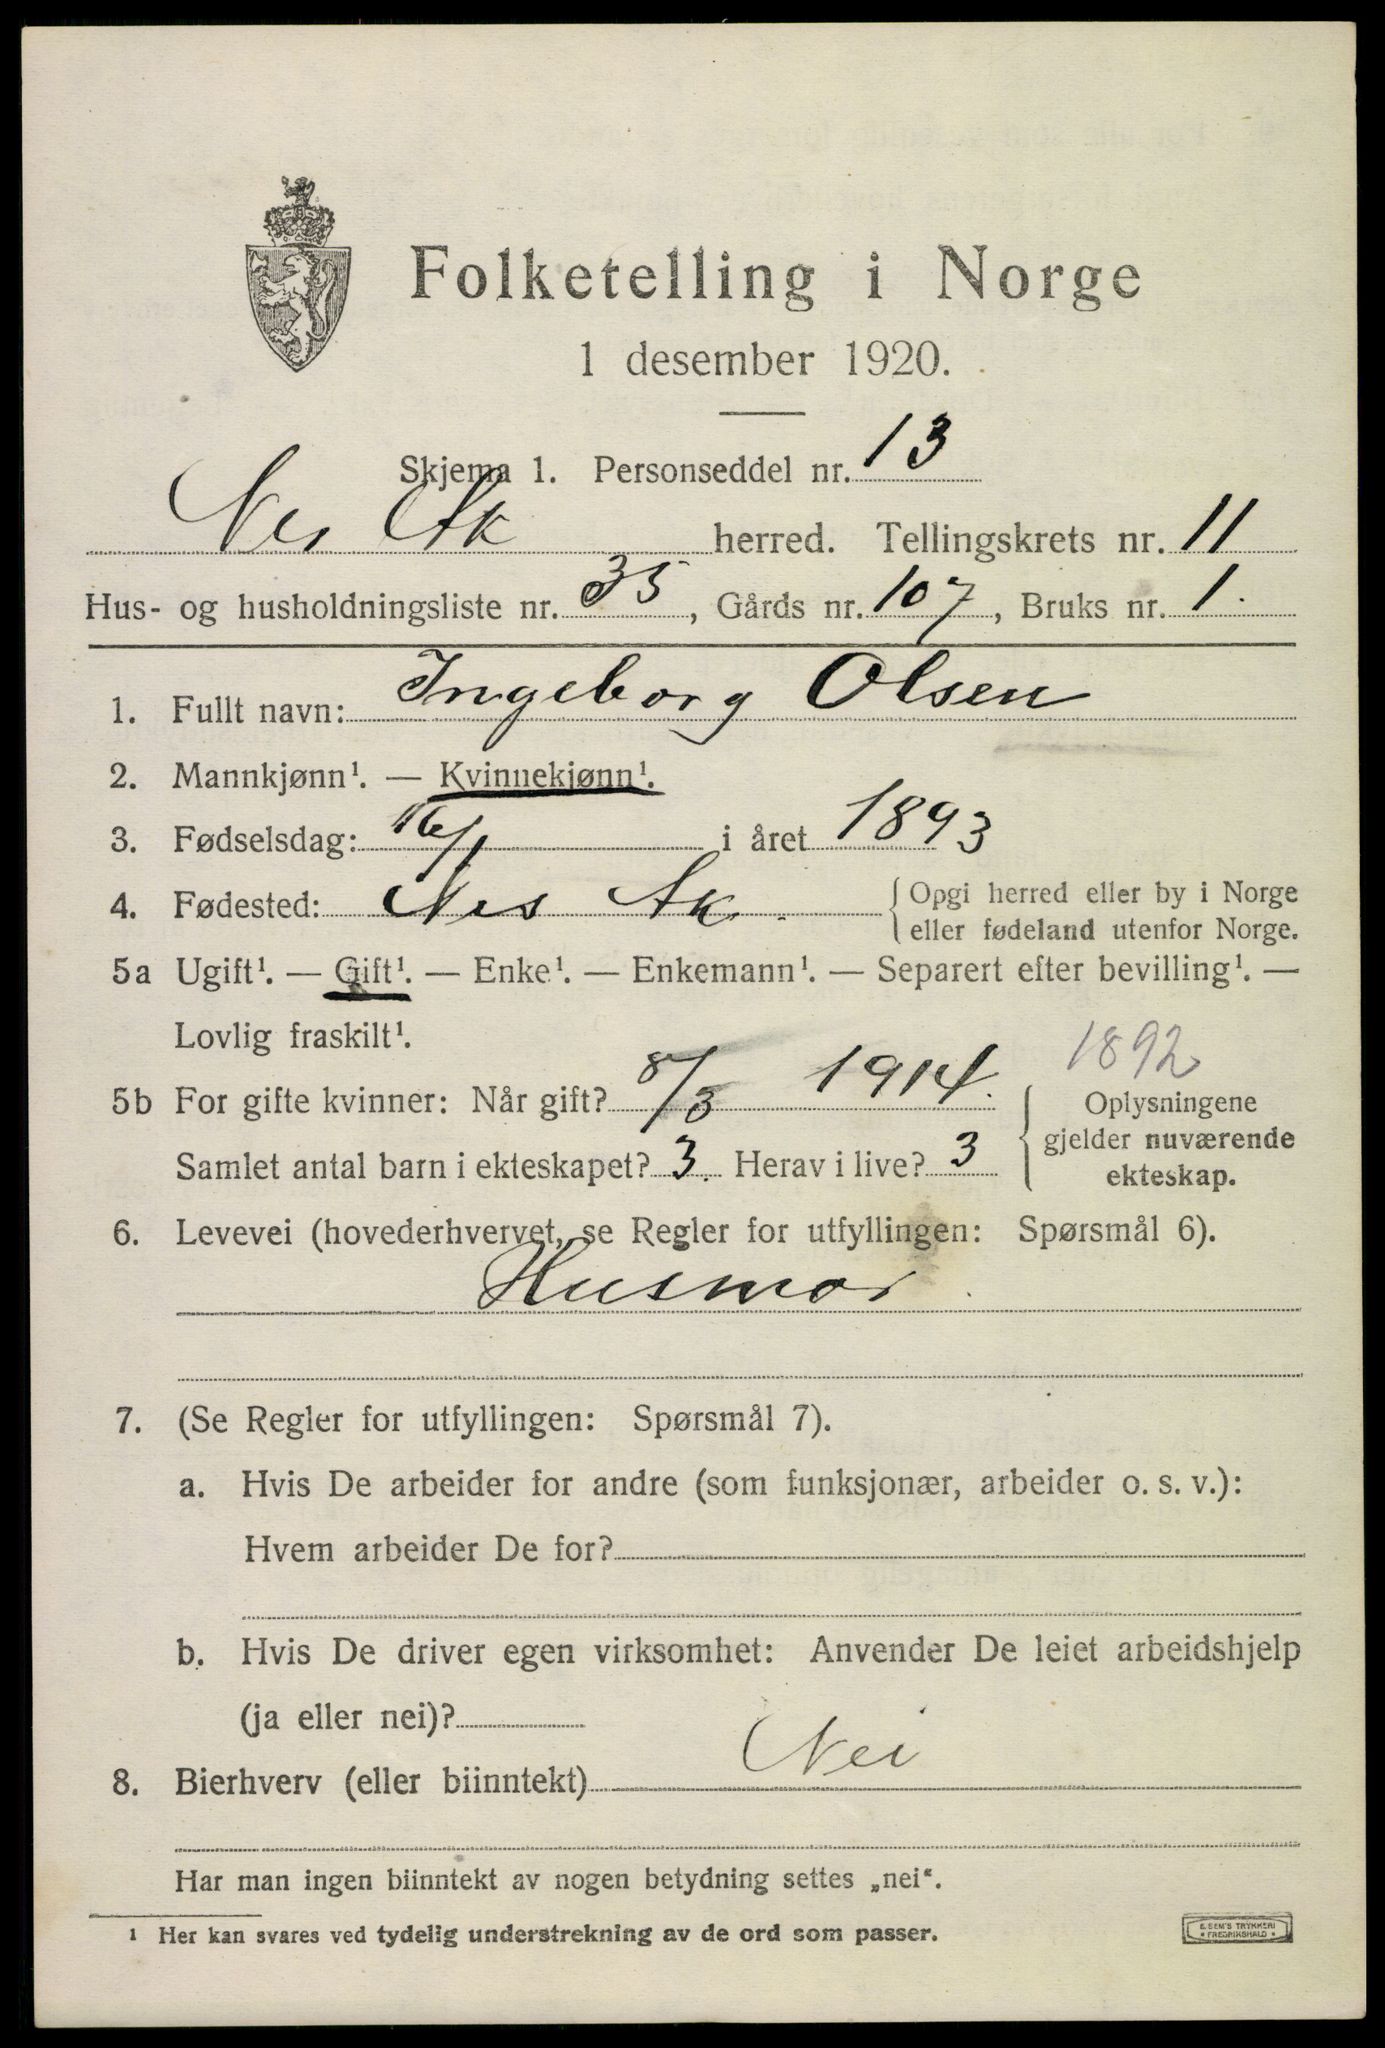 Folketelling i Norge
1 desember 1920.
Skjema 1. Personseddel nr. 13
Nes Ak herred. Tellingskrets nr. 11
Hus- og husholdningsliste nr. 35, Gårds nr. 107, Bruks nr. 1.
1. Fullt navn: Ingeborg Olsen
2. Mannkjønn¹. — Kvinnekjønn¹.
3. Fødselsdag: 16/1 i året 1893
4. Fødested: Nes Ak. { Opgi herred eller by i Norge
eller fødeland utenfor Norge.
5a Ugift¹. — Gift¹. — Enke¹. — Enkemann¹. — Separert efter bevilling¹. —
Lovlig fraskilt¹.
1892
5b For gifte kvinner: Når gift? 8/3 1914. { Oplysningene
gjelder nuværende
Samlet antal barn i ekteskapet? 3. Herav i live? 3 ekteskap.
6. Levevei (hovederhvervet, se Regler for utfyllingen: Spørsmål 6).
Husmor.
7. (Se Regler for utfyllingen: Spørsmål 7).
a. Hvis De arbeider for andre (som funksjonær, arbeider o. s. v.):
Hvem arbeider De for?
b. Hvis De driver egen virksomhet: Anvender De leiet arbeidshjelp
(ja eller nei)?
8. Bierhverv (eller biinntekt) Nei
Har man ingen biinntekt av nogen betydning settes „nei“.
¹ Her kan svares ved tydelig understrekning av de ord som passer.
E. SEM'S TRYKKERI
• FREDRIKSHALD •